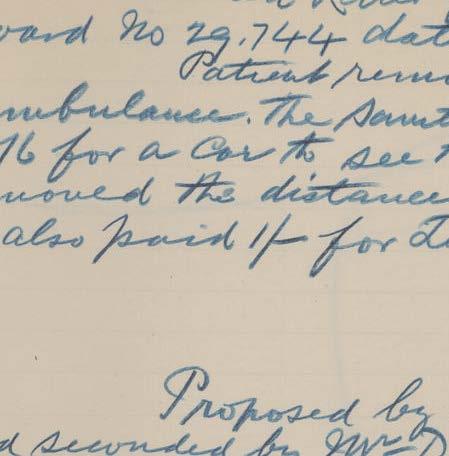 ward No 29.744 dat
Patient remo
mbulance. The Sanit
/6 for a Car to see
moved the distance
also paid 1/- for
Proposed by
d seconded by Mr D